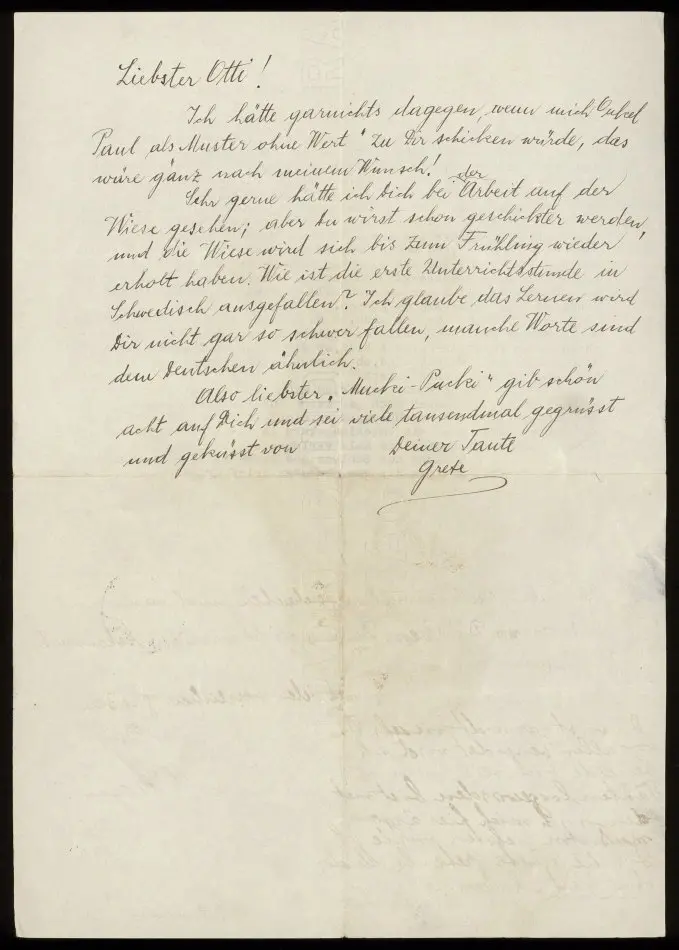 Liebster Otti!
Ich hätte garnichts dagegen, wenn mich Onkel
Paul als Muster ohne Wert" zu Dir schicken würde, das
wäre ganz nach meinem Wunsch!
Sehr gerne hätte ich Dich bei der Arbeit auf der
Wiese gesehen; aber Du wirst schon geschickter werden,
und die Wiese wird sich bis zum Frühling wieder
erholt haben. Wie ist die erste Unterrichtsstunde in
Schwedisch ausgefallen? Ich glaube das Lernen wird
Dir nicht gar so schwer fallen, manche Worte sind
dem Deutschen ähnlich.
Also liebster „Mucki-Pucki" gib schön
acht auf Dich und sei viele tausendmal gegrüsst
und geküsst von Deiner Tante
Grete